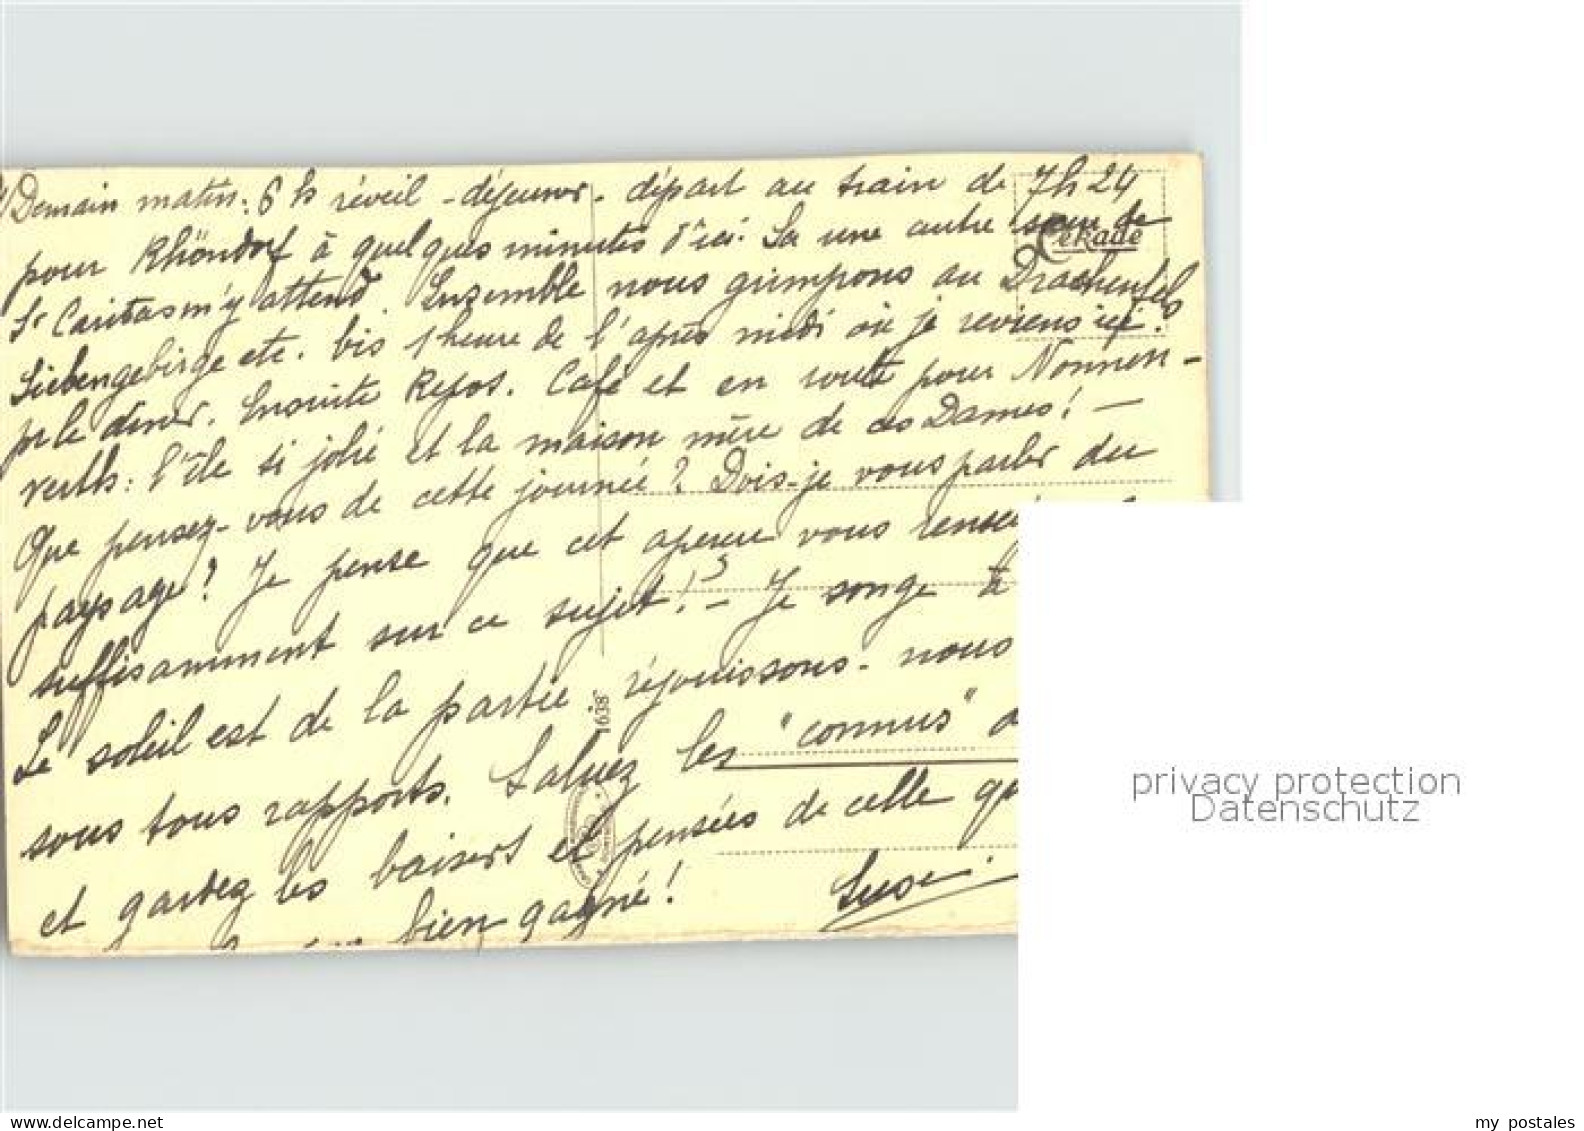 Demain matin: 6 h réveil - déjeuner - départ au train de 7h 24
pour Rhöndorf à quelques minutes d'ici. Là une autre sœur de
Cekade
Sr Caritas m'y attend. Ensemble nous grimpons au Drachenfels
Siebengebirge etc. bis 1 heure de l'après midi où je reviens ici
pr le dîner. Ensuite Repos. Café et en route pour Nonnen-
werth: l'île si jolie et la maison mère de ces Dames! -
Que pensez-vous de cette journée? Dois-je vous parler du
paysage? Je pense que cet aperçu vous
suffisamment sur ce sujet! - Je songe à
Le soleil est de la partie réjouissons-nous
sous tous rapports. Saluez les "connus"
et gardez les baisers et pensées de celle
bien gagné!
Suse
1638
privacy protection
Datenschutz
my postales